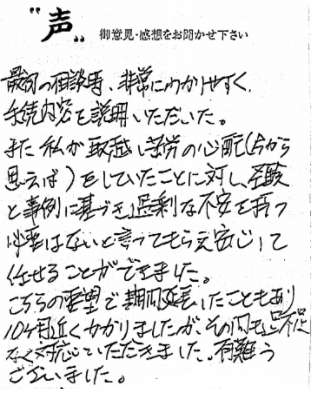 "声" 御意見・感想をお聞かせ下さい
最初の相談時、非常にわかりやすく、
手続内容を説明いただいた。
また私が取越し苦労の心配(今から
思えば)をしていたことに対し、経験
と事例に基づき過剰な不安を持つ
必要はないと言ってもらえ安心して
任せることができました。
こちらの要望で期間延長したこともあり
10ヶ月近くかかりましたが、その間も
なく対応していただきました。有難う
ございました。